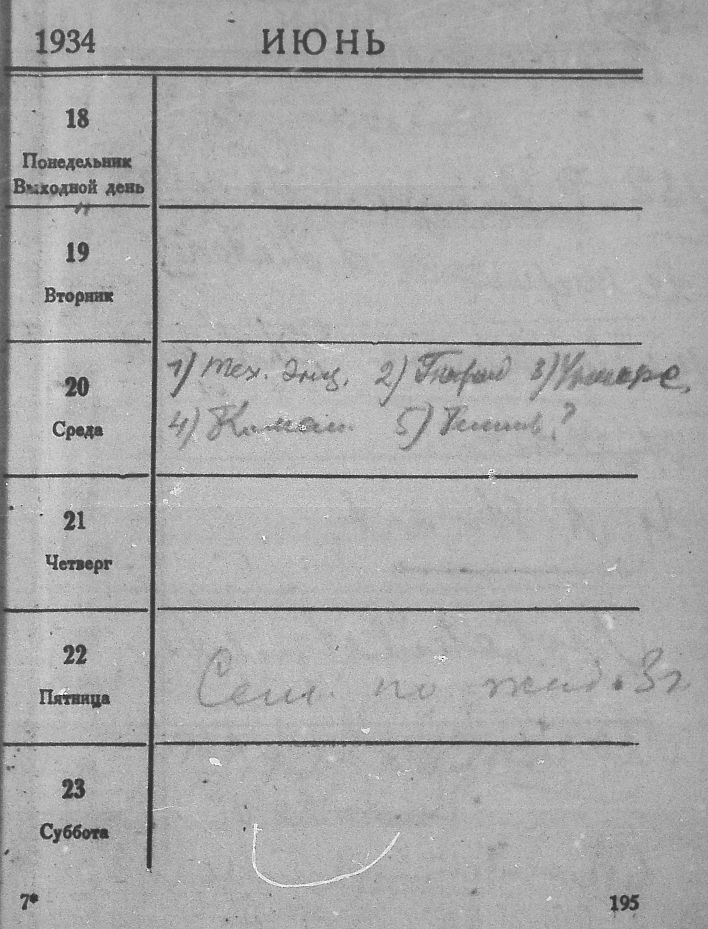 1934 ИЮНЬ
18
Понедельник
Выходной день
"
19
Вторник
20
Среда
1) Тех. энц. 2) 3)
4) 5) ?
21
Четверг
22
Пятница
Сем. по жид. 3г
23
Суббота
7* 195